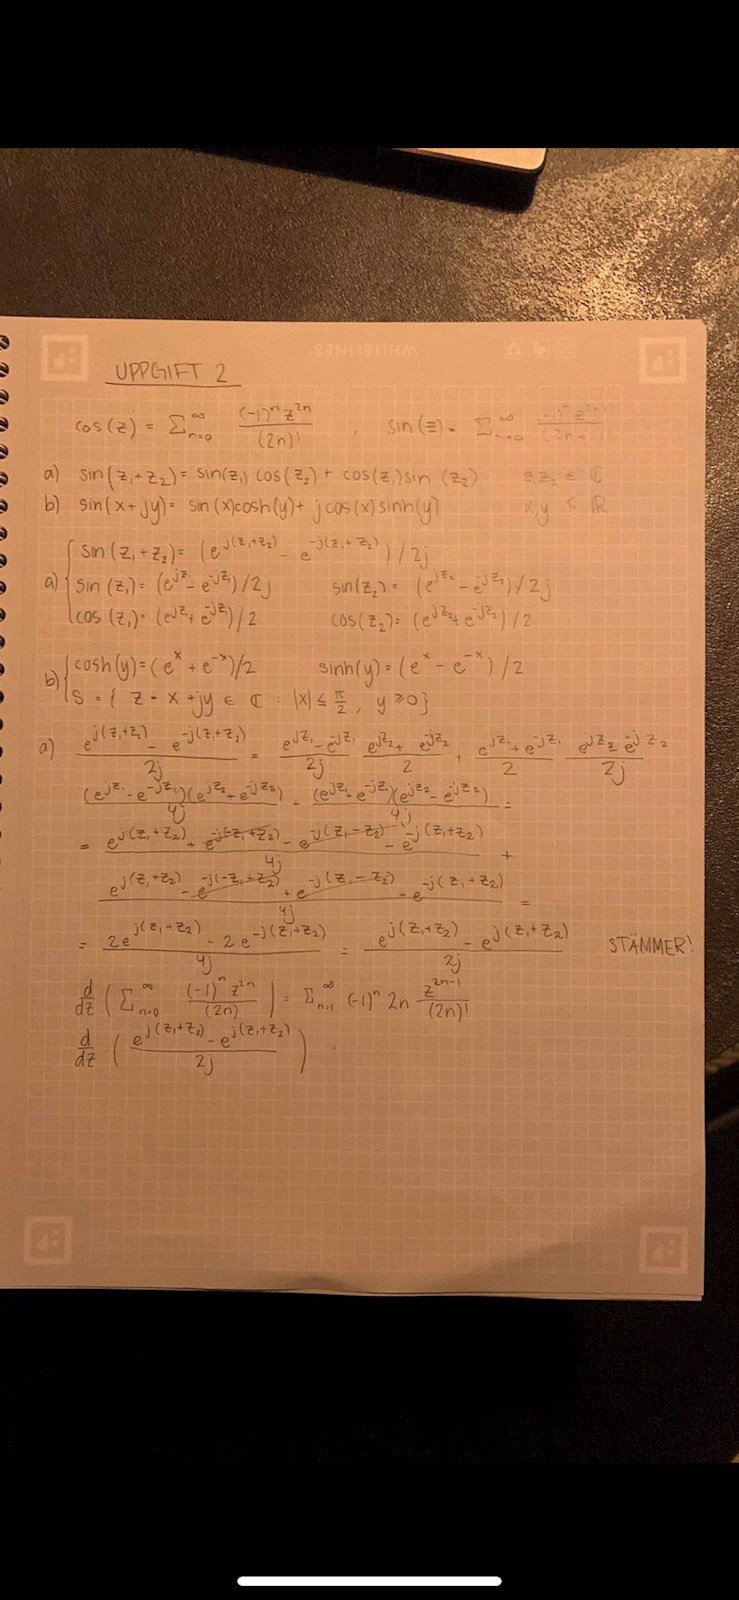 WHITELINES
UPPGIFT 2
cos(z) = Σₙ₌₀^∞ (-1)ⁿ z²ⁿ / (2n)! , sin(z) = Σₙ₌₀^∞
a) sin(z₁+z₂) = sin(z₁) cos(z₂) + cos(z₁) sin(z₂) z₁,z₂ ∈ ℂ
b) sin(x+jy) = sin(x)cosh(y) + j cos(x) sinh(y) x,y ∈ ℝ
sin(z₁+z₂) = (e^{j(z₁+z₂)} - e^{-j(z₁+z₂)}) / 2j
a) { sin(z₁) = (e^{jz₁} - e^{-jz₁}) / 2j sin(z₂) = (e^{jz₂} - e^{-jz₂}) / 2j
cos(z₁) = (e^{jz₁} + e^{-jz₁}) / 2 cos(z₂) = (e^{jz₂} + e^{-jz₂}) / 2
b) { cosh(y) = (e^x + e^{-x})/2 sinh(y) = (e^x - e^{-x}) / 2
S = { z = x + jy ∈ ℂ : |x| ≤ π/2 , y ≥ 0 }
a) (e^{j(z₁+z₂)} - e^{-j(z₁+z₂)}) / 2j = (e^{jz₁} - e^{-jz₁}) / 2j (e^{jz₂} + e^{-jz₂}) / 2 + (e^{jz₁} + e^{-jz₁}) / 2 (e^{jz₂} - e^{-jz₂}) / 2j
(e^{jz₁} - e^{-jz₁})(e^{jz₂} + e^{-jz₂}) / 4j + (e^{jz₁} + e^{-jz₁})(e^{jz₂} - e^{-jz₂}) / 4j =
= (e^{j(z₁+z₂)} + e^{-j(-z₁+z₂)} - e^{-j(z₁-z₂)} - e^{-j(z₁+z₂)}) / 4j +
(e^{j(z₁+z₂)} - e^{-j(-z₁+z₂)} + e^{-j(z₁-z₂)} - e^{-j(z₁+z₂)}) / 4j =
= (2e^{j(z₁+z₂)} - 2e^{-j(z₁+z₂)}) / 4j = (e^{j(z₁+z₂)} - e^{j(z₁+z₂)}) / 2j STÄMMER!
d/dz ( Σₙ₌₀^∞ (-1)ⁿ z²ⁿ / (2n) ) = Σₙ₌₁^∞ (-1)ⁿ 2n z^{2n-1} / (2n)!
d/dz ( (e^{j(z₁+z₂)} - e^{j(z₁+z₂)}) / 2j )